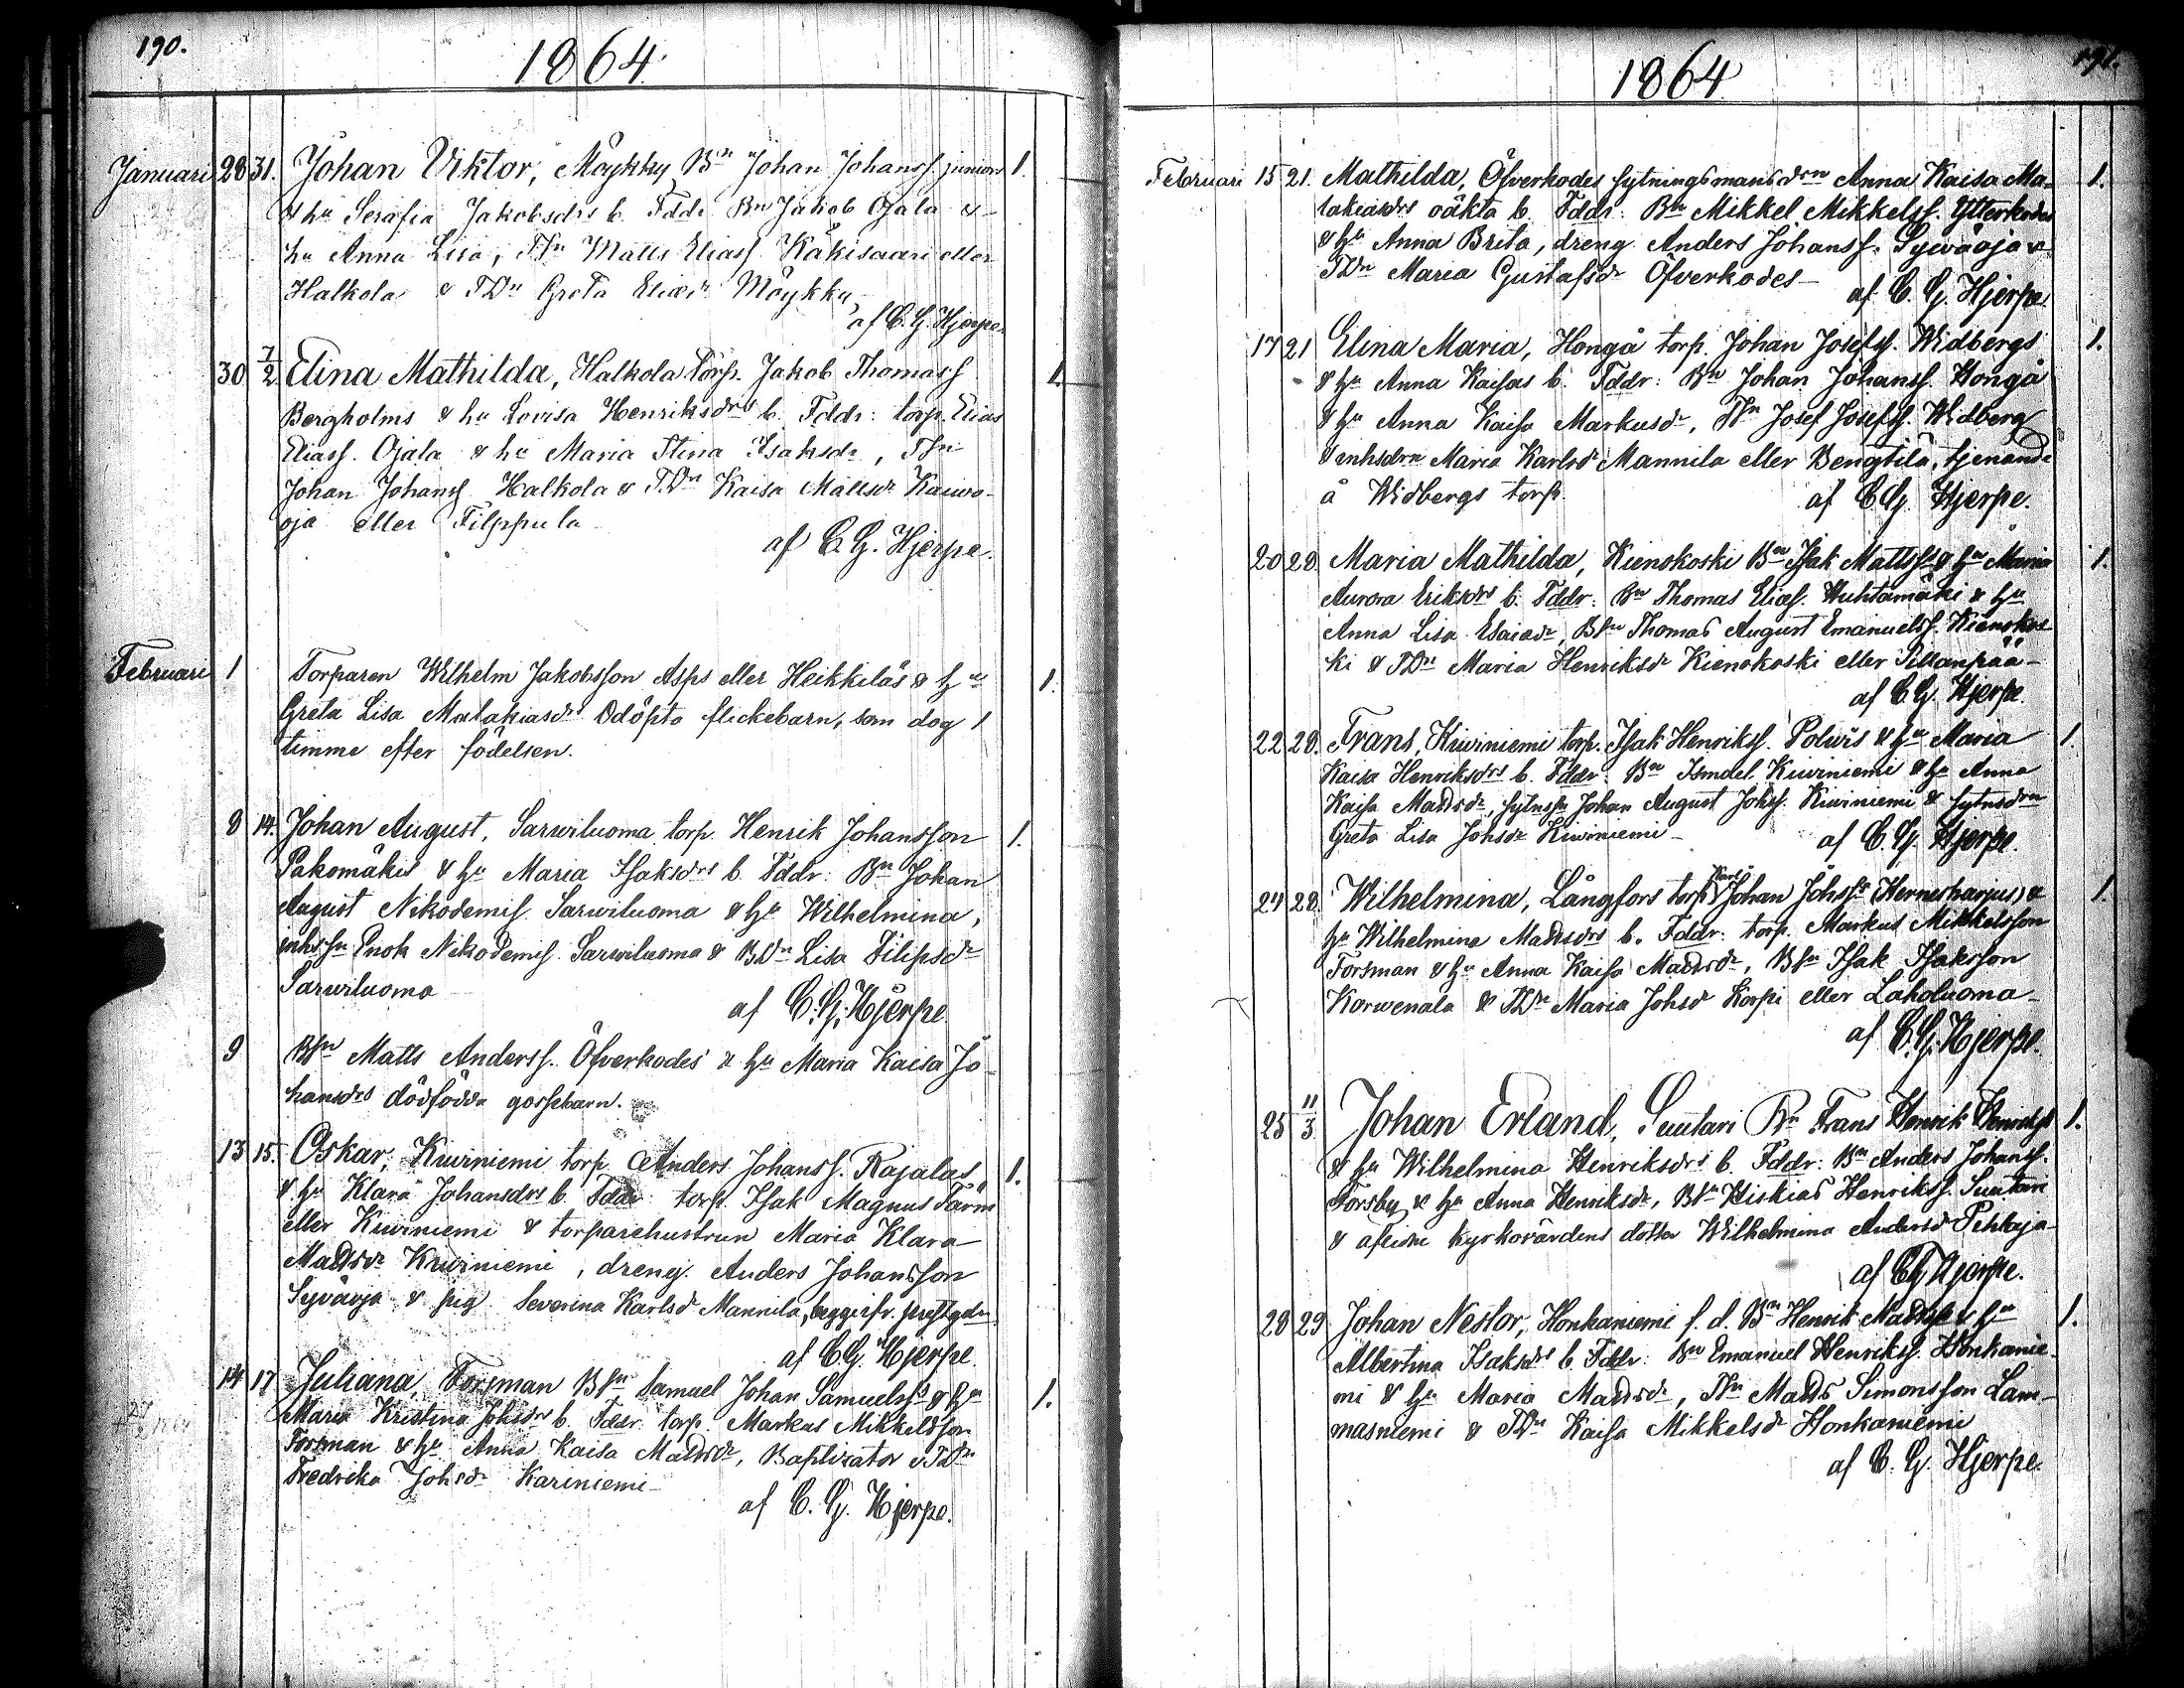 190.
1864
Januari 28 31. Johan Viktor, Möykky Bn Johan Johanss. juniors 1.
& hu Serafia Jakobsdrs b. Fddr Bn Jakob Ojala &
hu Anna Lisa, TSn Matts Eliass. Käkisaari eller
Halkola & TDn Greta Eliædr Möykky
af C. G. Hjerpe.
30 7/2 Elina Mathilda, Halkola torp. Jakob Thomass. 1.
Bergholms & hu Lovisa Henriksdrs b. Fddr: torp. Elias
Eliass. Ojala & hu Maria Stina Isaksdr, TSn
Johan Johanss. Halkola & TDn Kaisa Mattsdr Kaivo-
oja eller Filppula
af C. G. Hjerpe.
Februari 1 Torparen Wilhelm Jakobsson Asps eller Heikkiläs & hu 1.
Greta Lisa Malakiasdrs Odöpta flickebarn, som dog 1
timme efter födelsen.
8 14. Johan August, Sarwiluoma torp. Henrik Johansson 1.
Pakomäkis & hu Maria Isaksdrs b. Fddr: Bn Johan
August Nikodemis. Sarwiluoma & hu Wilhelmina,
inhsSn Enok Nikodemis. Sarwiluoma & BDn Lisa Filipsdr
Sarwiluoma
af C. G. Hjerpe
9 BSn Matts Anderss. Öfverkodes & hu Maria Kaisa Jo-
hansdrs dödfödda gossebarn.
13 15. Oskar, Kiwiniemi torp Anders Johanss. Rajalas 1.
& hu Klara Johansdrs b. Fddr: torp. Isak Magnus Färm
eller Kiwiniemi & torparehustrun Maria Klara
Mattsdr Kiwiniemi, dreng. Anders Johansson
Syväoja & pig Severina Karlsd Mannila,
af C. G. Hjerpe.
14 17 Juliana, Forsman BSn Samuel Johan Samuelss & hu 1.
Maria Kristina Johsdrs b. Fddr torp. Markus Mikkelsson
Forsman & hu Anna Kaisa Mattsdr, Baptisator & TDn
Fredrika Johsdr Kariniemi
af C. G. Hjerpe.
191.
1864
Februari 15 21. Mathilda, Öfverkodes sytningsmansdrn Anna Kaisa Ma- 1.
lakiasdrs oäkta b. Fddr: Bn Mikkel Mikkelss. Ytterkodes
& hu Anna Brita, dreng Anders Johanss. Syväoja &
TDn Maria Gustafsdr Öfverkodes
af C. G. Hjerpe.
17 21 Elina Maria, Hongå torp. Johan Josefss. Widbergs 1.
& hu Anna Kaisas b. Fddr: Bn Johan Johanss. Hongå
& hu Anna Kaisa Markusdr, TSn Josef Josefss. Widberg
& inhsdrn Maria Karlsdr Mannila eller Bengtilä, tjenande
å Widbergs torp.
af C G. Hjerpe.
20 28. Maria Mathilda, Kienokoski Bn Isak Mattss & hu Maria 1.
Aurora Eriksdrs b. Fddr: Bn Thomas Eliæs. Huhtamäki & hu
Anna Lisa Esaiædr, BSn Thomas August Emanuelss. Kienokos-
ki & TDn Maria Henriksdr Kienokoski eller Pillanpää
af C G. Hjerpe.
22 28. Frans, Kiwiniemi torp. Isak Henrikss. Polwis & hu Maria 1.
Kaisa Henriksdrs b. Fddr: Bn Ismael Kiwiniemi & hu Anna
Kaisa Mattsdr, sytnsSn Johan August Johss. Kiwiniemi & sytnsdrn
Greta Lisa Johsdr Kiwiniemi
af C. G. Hjerpe.
24 28. Wilhelmina, Långfors torp. Karl Johan Johss (Herneharjus) & 1.
hu Wilhelmina Mattsdrs b. Fddr: torp. Markus Mikkelsson
Forsman & hu Anna Kaisa Mattsdr, BSn Isak Isaksson
Korwenala & TDn Maria Johsd Korpi eller Laholuoma
af C. G. Hjerpe.
25 11/3 Johan Erland, Suutari Bn Frans Henrik Henrikss 1.
& hu Wilhelmina Henriksdrs b. Fddr: Bn Anders Johanss.
Forsby & hu Anna Henriksdr, BSn Hiskias Henrikss. Suutari
& aflidne kyrkovärdens dotter Wilhelmina Andersd Pihlaja
af C G Hjerpe.
28 29 Johan Nestor, Honkaniemi f. d. Bn Henrik Mattss & hu 1.
Albertina Isaksdrs b. Fddr: Bn Emanuel Henrikss. Honkanie-
mi & hu Maria Mattsdr, TSn Matts Simonsson Lam-
masniemi & TDn Kaisa Mikkelsd Honkaniemi
af C. G. Hjerpe.